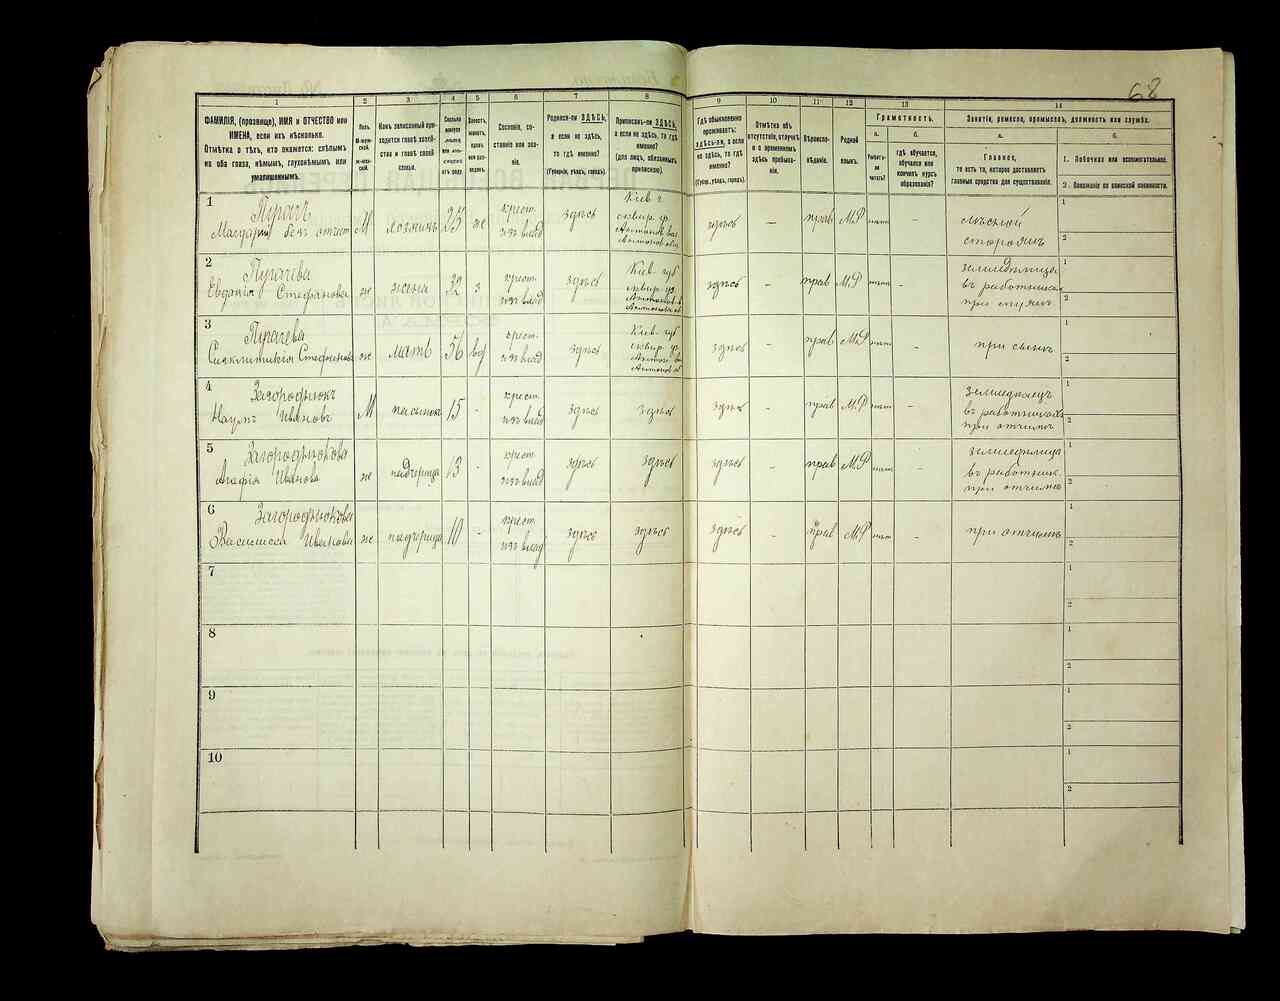 68
1
2
3
4
5
6
7
8
9
10
11
12
13
14
ФАМИЛІЯ, (прозвище), ИМЯ и ОТЧЕСТВО или
ИМЕНА, если ихъ нѣсколько.
Отмѣтка о тѣхъ, кто окажется: слѣпымъ
на оба глаза, нѣмымъ, глухонѣмымъ или
умалишеннымъ.
Полъ.
Какъ записанный приходится главѣ хозяйства и главѣ своей семьи.
Сословіе, состояніе или званіе.
Родился-ли ЗДѢСЬ,
а если не здѣсь,
то гдѣ именно?
(Губернія, уѣздъ, городъ).
Приписанъ-ли ЗДѢСЬ,
а если не здѣсь, то гдѣ
именно?
(для лицъ, обязанныхъ
припискою).
Гдѣ обыкновенно
проживаетъ:
здѣсь-ли, а если
не здѣсь, то гдѣ
именно?
(Губерн., уѣздъ, городъ).
Отмѣтка объ
отсутствіи, отлучкѣ
и о временномъ
здѣсь пребываніи.
Вѣроисповѣданіе.
Родной
языкъ.
Грамотность.
а.
Умѣетъ-ли
читать?
б.
гдѣ обучается,
обучался или
кончилъ курсъ
образованія?
Занятіе, ремесло, промыселъ, должность или служба.
а.
Главное,
то есть то, которое доставляетъ
главныя средства для существованія.
б.
1. Побочное или вспомогательное.
2. Положеніе по воинской повинности.
1
Пугачъ
безъ отчест
М
хозяинъ
25
же
крест.
изъ влад
здѣсь
Кіев г
сквир. у.
здѣсь
—
прав
М.Р
нѣтъ
-
лѣсной
сторожъ
1
2
2
Пугачева
Евдокія Стефанова
ж
жена
32
з
крест.
изъ влад
здѣсь
Кіев. губ
сквир. уз
здѣсь
-
прав
М.Р
нѣтъ
-
земледѣлица
въ работникахъ
при мужѣ
1
2
3
Пугачева
Синклитикія Стефанова
ж
мать
56
вд
крест.
изъ влад
здѣсь
Кіев. губ
сквир. у.
здѣсь
-
прав
М.Р
нѣтъ
-
при сынѣ
1
2
4
Загороднюкъ
Наумъ Ивановъ
М
пасынок
15
-
крест.
изъ влад
здѣсь
здѣсь
здѣсь
-
прав
М.Р
нѣтъ
-
земледѣлецъ
въ работникахъ
при отчимѣ
1
2
5
Загороднюкова
Агафія Иванова
ж
падчерица
13
-
крест.
изъ влад
здѣсь
здѣсь
здѣсь
-
прав
М.Р
нѣтъ
-
земледѣлица
въ работник.
при отчимѣ
1
2
6
Загороднюкова
Василисса Иванова
ж
падчерица
10
-
крест.
изъ влад
здѣсь
здѣсь
здѣсь
-
прав
М.Р
нѣтъ
-
при отчимѣ
1
2
7
1
2
8
1
2
9
1
2
10
1
2